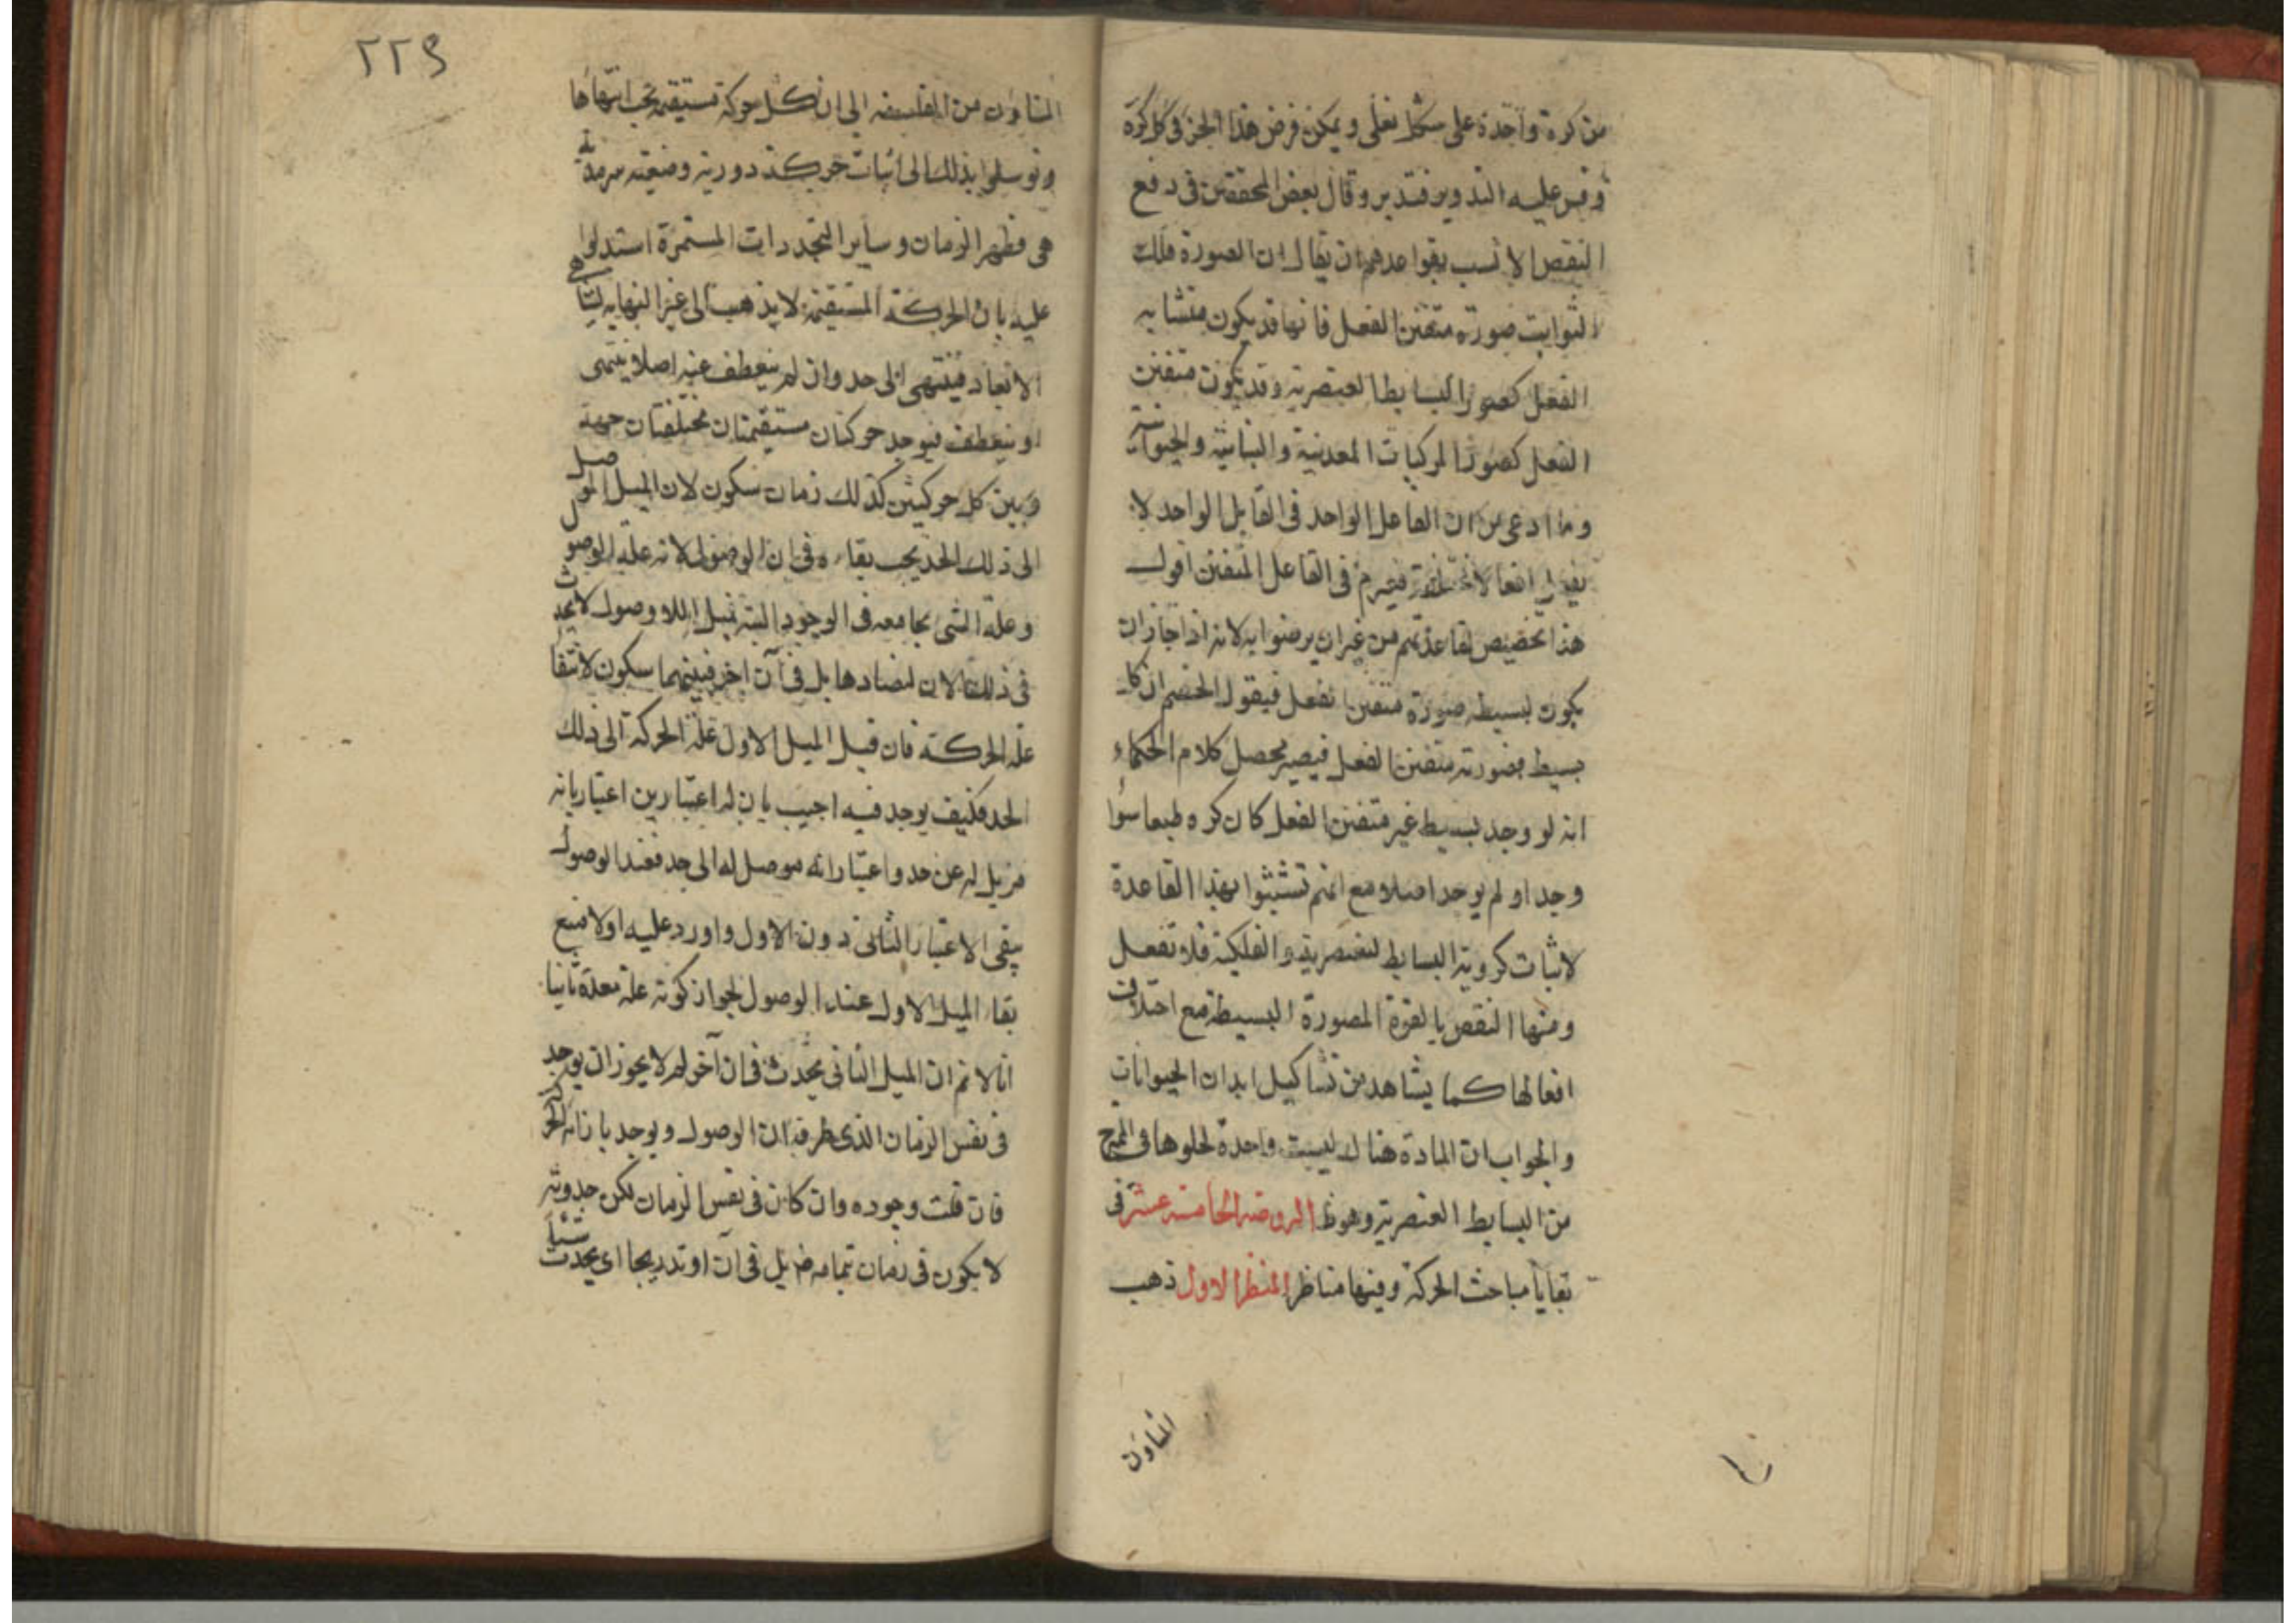 من كرة واحدة على شكل نعلى ويمكن فرض هذا الجزء فى كل كرة
وقس عليه التدوير فتدبر وقال بعض المحققين فى دفع
النقص الانسب بقواعدهم ان يقال ان الصورة فلك
الثوابت صورته متفنن الفعل فانها قد يكون متشابه
الفعل كصور البسايط العنصرية وقد يكون متفنن
الفعل كصور المركبات المعدنية والنباتية والحيوانية
وما ادعى من ان الفاعل الواحد فى القابل الواحد لا
افعالا مختلفة فى الفاعل المتفنن اقول
هذا تخصيص لقاعدتهم من غير ان يرضوا به لانه اذا جاز ان
يكون لبسيط صورة متفنن الفعل فيقول الخصم ان كل
بسيط فصورته متفنن الفعل فيصير محصل كلام الحكماء
انه لو وجد بسيط غير متفنن الفعل كان كره طبعا سوا
وجد او لم يوجد اصلا مع انهم تشبثوا بهذا القاعدة
لاثبات كروية البسايط العنصرية والفلكية فلا تفعل
ومنها النقص بالقوة المصورة البسيطة مع اختلاف
افعالها كما يشاهد من تشاكيل ابدان الحيوانات
والجواب ان المادة هناك ليست واحدة لحلولها فى الممتزج
من البسايط العنصرية وهو ظ الروضه الخامسه عشر فى
بقايا مباحث الحركة وفيها مناظر المنظر الاول ذهب
المشاون
٢٢٩
المشاون من الفلسفه الى ان كل حركة مستقيمة يجب انتهاها
وتوسلوا بذلك الى اثبات حركة دورية وضعيته سرمدية
هى فظهر الزمان وساير التجددات المستمرة استدلوا
عليه بان الحركة المستقيمة لا يذهب الى غير النهايه لتناهى
الابعاد فينتهى الى حد وان لم ينعطف عنه اصلا ينتهى
او ينعطف فيوجد حركتان مستقيمتان مختلفتان جهة
وبين كل حركتين كذلك زمان سكون لان الميل الموصل
الى ذلك الحد يجب بقاءه فى ان الوصول لانه علة الوصول
وعلة الشى يجامعه فى الوجود البتة فميل اللاوصول لا يحدث
فى ذلك الان لتضادها بل فى آن اخر فبينهما سكون لانتفا
علة الحركة فان قيل الميل الاول علة الحركة الى ذلك
الحد فكيف يوجد فيه اجيب بان له اعتبارين اعتبار بانه
مزيل له عن حد واعتبار انه موصل له الى حد فعند الوصول
يبقى الاعتبار الثانى دون الاول واورد عليه اولا منع
بقاء الميل الاول عند الوصول لجواز كونه علة معدة ثانيا
انا لا نم ان الميل الثانى يحدث فى ان آخر لم لا يجوز ان يوجد
فى نفس الزمان الذى طرفه ان الوصول ويوجد بازائه الحركة
فان قلت وجوده وان كان فى نفس الزمان لكن حدوثه
لا يكون فى زمان بتمامه بل فى آن او تدريجا اى يحدث شيئا